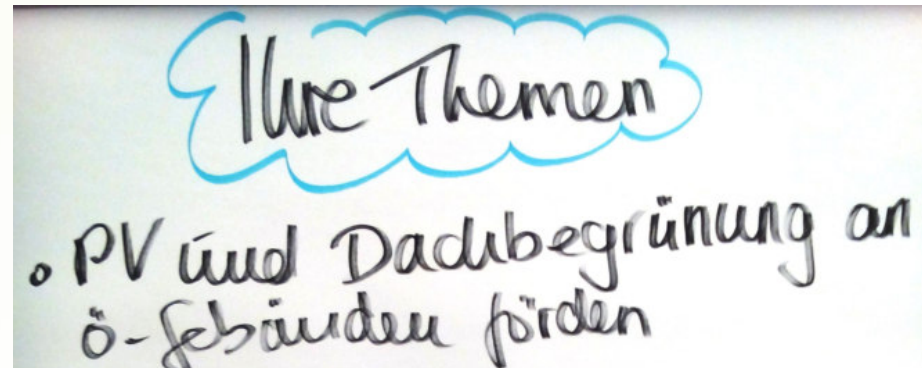 Ihre Themen
• PV und Dachbegrünung an
ö-Gebäuden förden